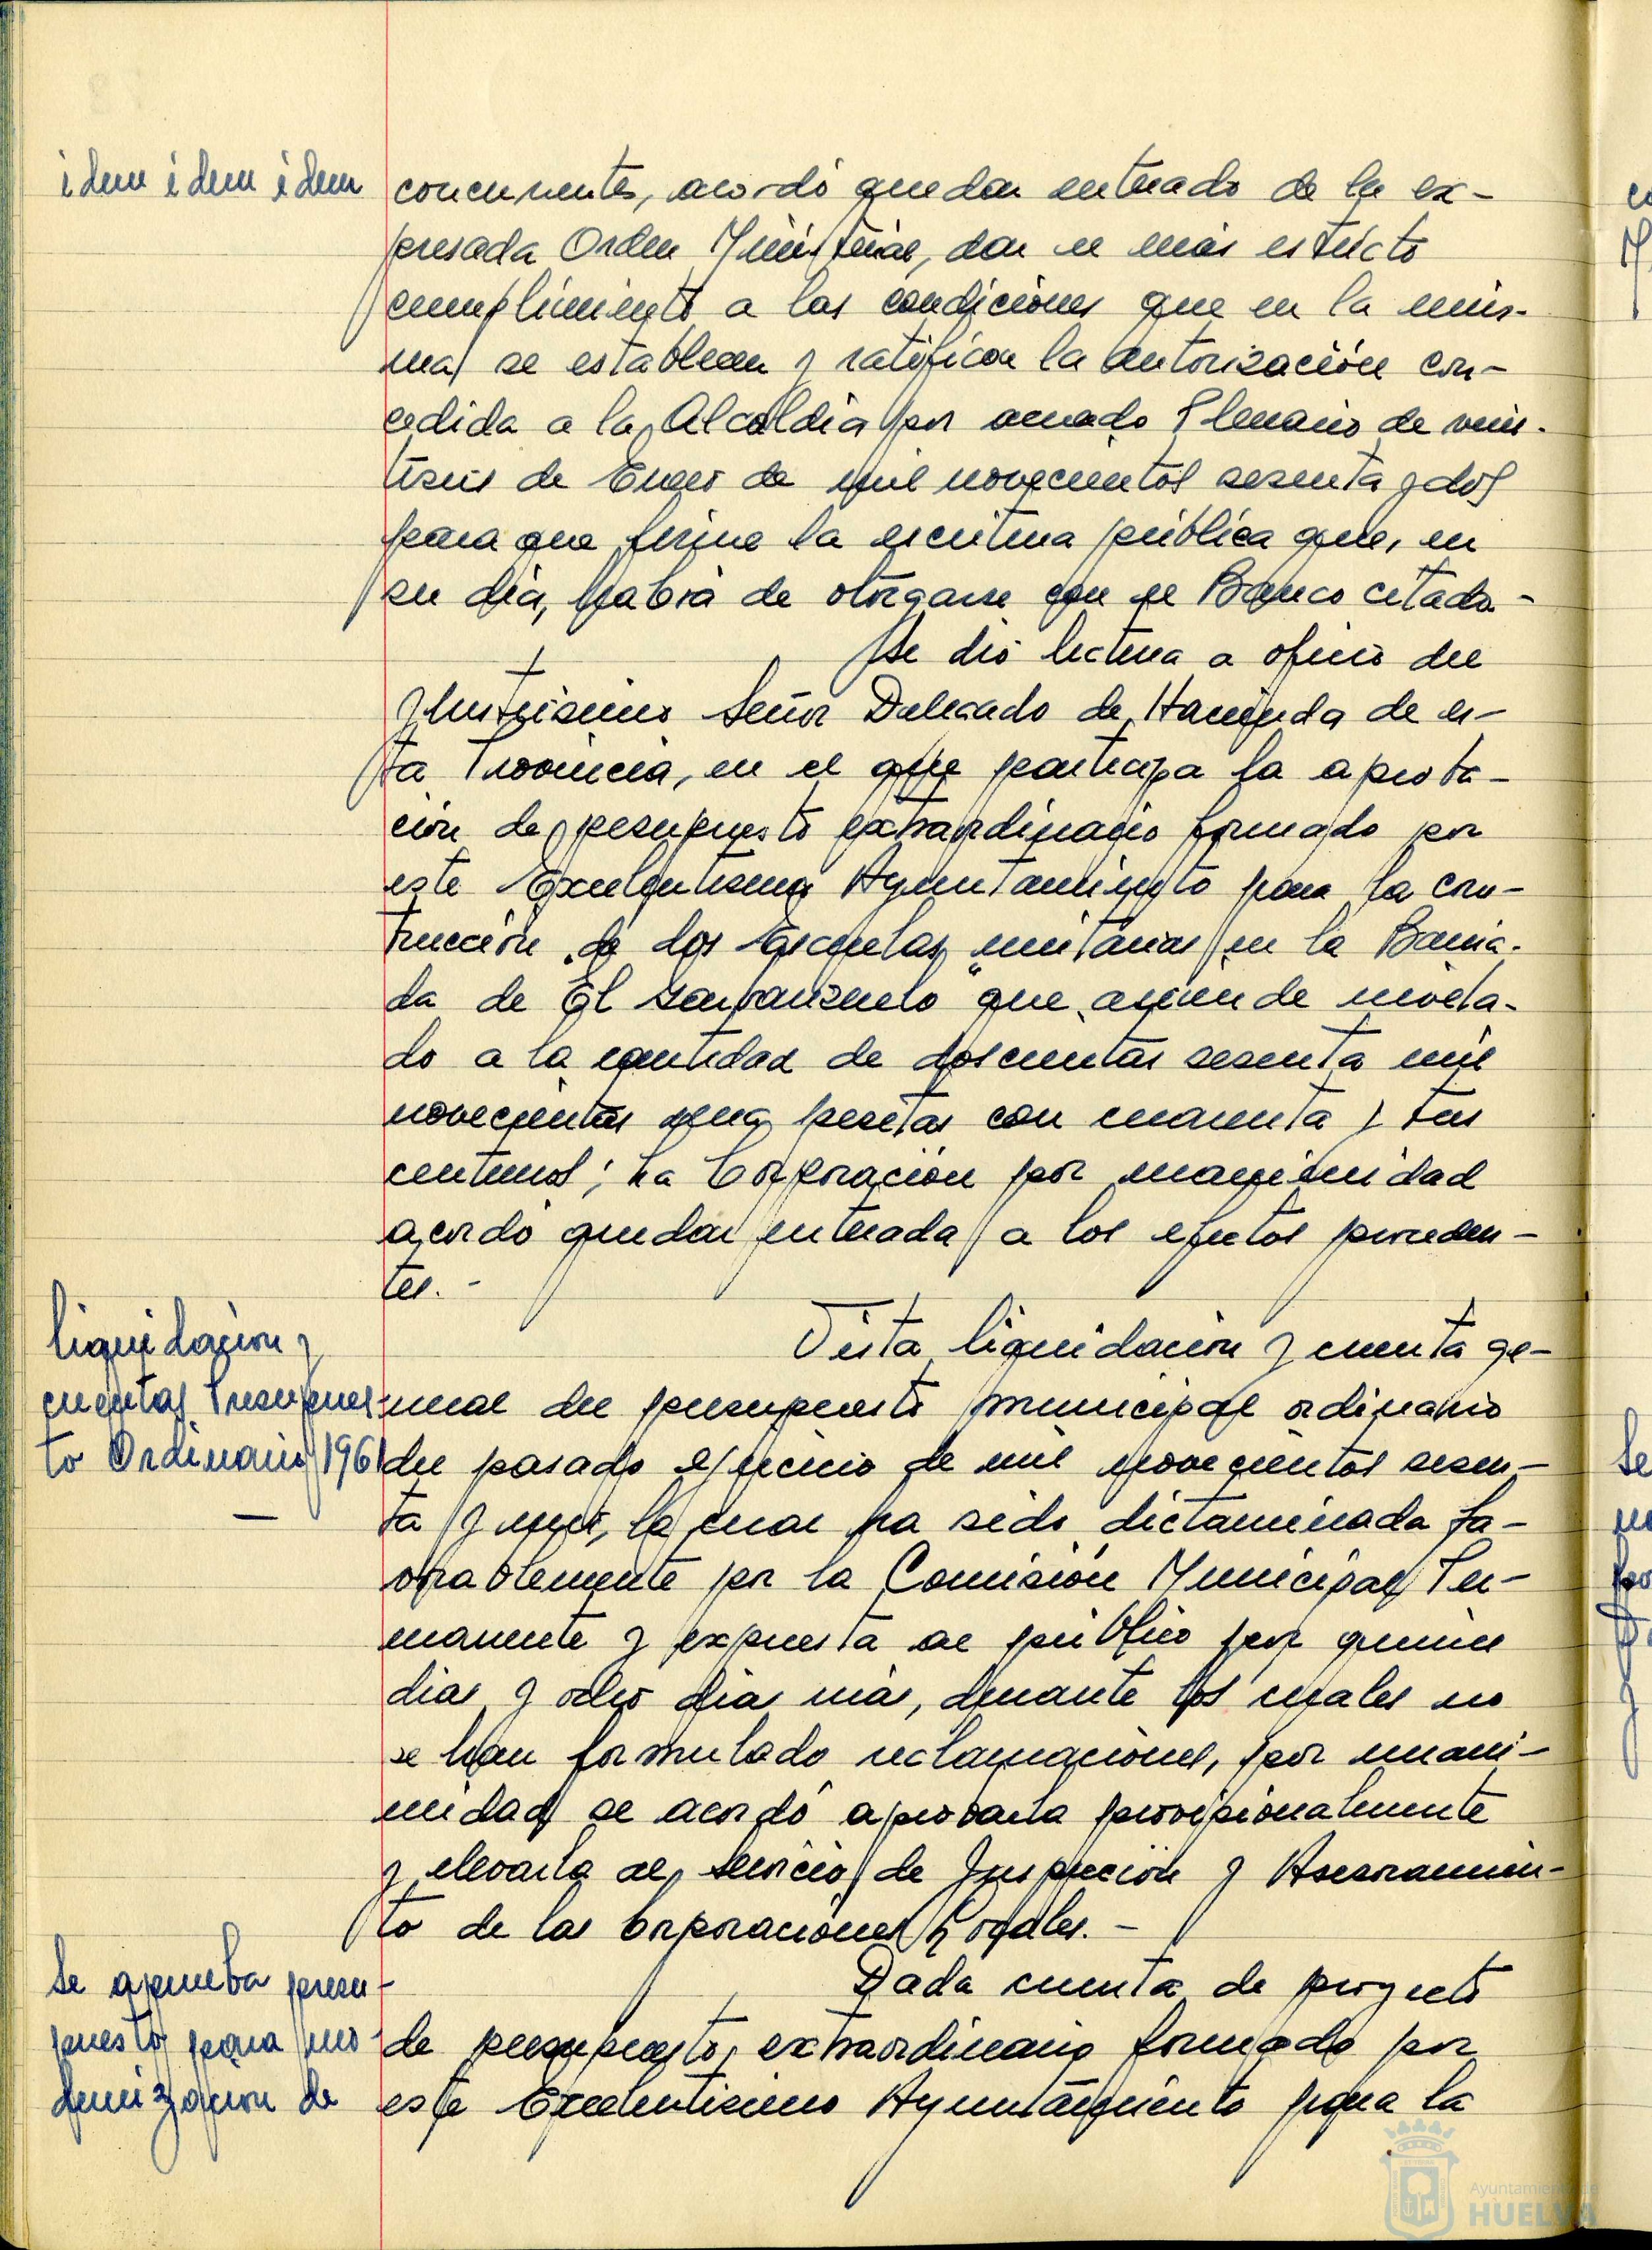 idem idem idem
concurrentes, acordó quedar enterado de la ex-
presada Orden Ministerial, dar el más estricto
cumplimiento a las condiciones que en la mis-
ma se establecen y ratificar la autorización con-
cedida a la Alcaldía por acuerdo Plenario de vein-
tiseis de Enero de mil novecientos sesenta y dos
para que firme la escritura pública que, en
su día, habrá de otorgarse con el Banco citado.-
Se dió lectura a oficio del
Ilustrisimo Señor Delegado de Hacienda de es-
ta Provincia, en el que participa la aproba-
ción de presupuesto extraordinario formado por
este Excelentisimo Ayuntamiento para la cons-
trucción de dos Escuelas unitarias en la Barria-
da de "El Garranzuelo" que asciende nivela-
do a la cantidad de doscientas sesenta mil
novecientas una pesetas con cuarenta y tres
centimos; La Corporación por unanimidad
acordó quedar enterada a los efectos proceden-
tes.-
liquidación y
cuentas Presupues-
to Ordinario 1961
Vista liquidación y cuenta ge-
neral del presupuesto municipal ordinario
del pasado ejercicio de mil novecientos sesen-
ta y uno, la cual ha sido dictaminada fa-
vorablemente por la Comisión Municipal Per-
manente y expuesta al público por quince
dias y ocho dias más, durante los cuales no
se han formulado reclamaciones, por unani-
midad se acordó aprobarla provisionalmente
y elevarla al servicio de Inspección y Asesoramien-
to de las Corporaciones Locales.-
Se aprueba presu-
puesto para mo-
dernización de
Dada cuenta de proyecto
de presupuesto extraordinario formado por
este Excelentisimo Ayuntamiento para la
Ayuntamiento de
HUELVA